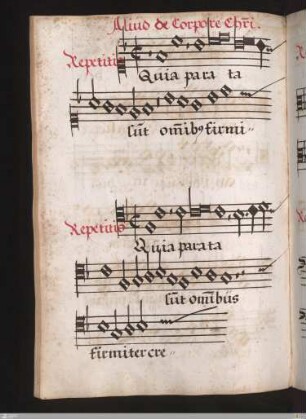 Aliud de Corpore Chri.
Repetitio
Quia para ta
sūt om̄ib9 firmi..
Repetitio
Quia parata
sūt om̄ibus
firmiter cre..